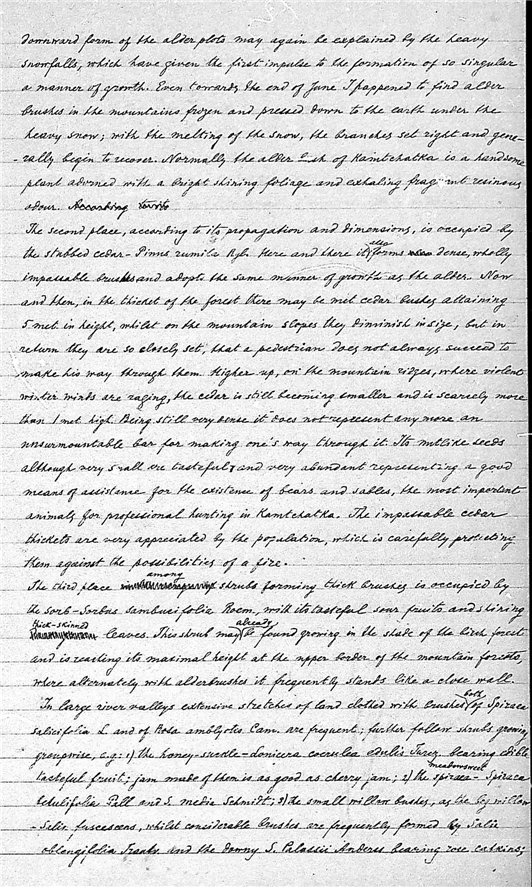 downward form of the alder plots may again be explained by the heavy
snowfalls, which have given the first impulse to the formation of so singular
a manner of growth. Even towards the end of June I happened to find alder
brushes in the mountains frozen and pressed down to the earth under the
heavy snow; with the melting of the snow, the branches set right and gene-
-rally begin to recover. Normally the alder bush of Kamtchatka is a handsome
plant adorned with a bright shining foliage and exhaling fragrant resinous
odour. According
The second place, according to its propagation and dimensions, is occupied by
the stubbed cedar - Pinus pumila Rgl. Here and there it also forms dense, wholly
impassable brushes and adopts the same manner of growth as the alder. Now
and then, in the thicket of the forest there may be met cedar bushes attaining
5 met in height, whilst on the mountain slopes they diminish in size, but in
return they are so closely set, that a pedestrian does not always succeed to
make his way through them. Higher up, on the mountain ridges, where violent
winter winds are raging, the cedar is still becoming smaller and is scarcely more
than 1 met high. Being still very dense it does not represent any more an
unsurmountable bar for making one's way through it. Its nutlike seeds
although very small are tasteful and very abundant representing a good
means of assistance for the existence of bears and sables, the most important
animals for professional hunting in Kamtchatka. The impassable cedar
thickets are very appreciated by the population, which is carefully protecting
them against the possibilities of a fire.
The third place among shrubs forming thick brushes is occupied by
the sorb - Sorbus sambucifolia Roem, with its tasteful sour fruits and shining
thick-skinned leaves. This shrub may already be found growing in the shade of the birch forest
and is reaching its maximal height at the upper border of the mountain forests,
where alternately with alderbrushes it frequently stands like a close wall.
In large river valleys extensive stretches of land clothed with brushes both of Spiraea
salicifolia L. and of Rosa amblyotis Cam. are frequent; further follow shrubs growing
groupwise, e.g: 1) the honey-suckle - Lonicera coerulea edulis Turcz, bearing edible
tasteful fruit; jam made of them is as good as cherry jam; 2) the spiraea - meadowsweet Spiraea
betulifolia Pall and S. media Schmidt; 3) the small willow bushes, as the bog willow
- Salix fuscescens, whilst considerable brushes are frequently formed by Salix
oblongifolia Trautv. and the downy S. Palassii Anders bearing rose catkins;